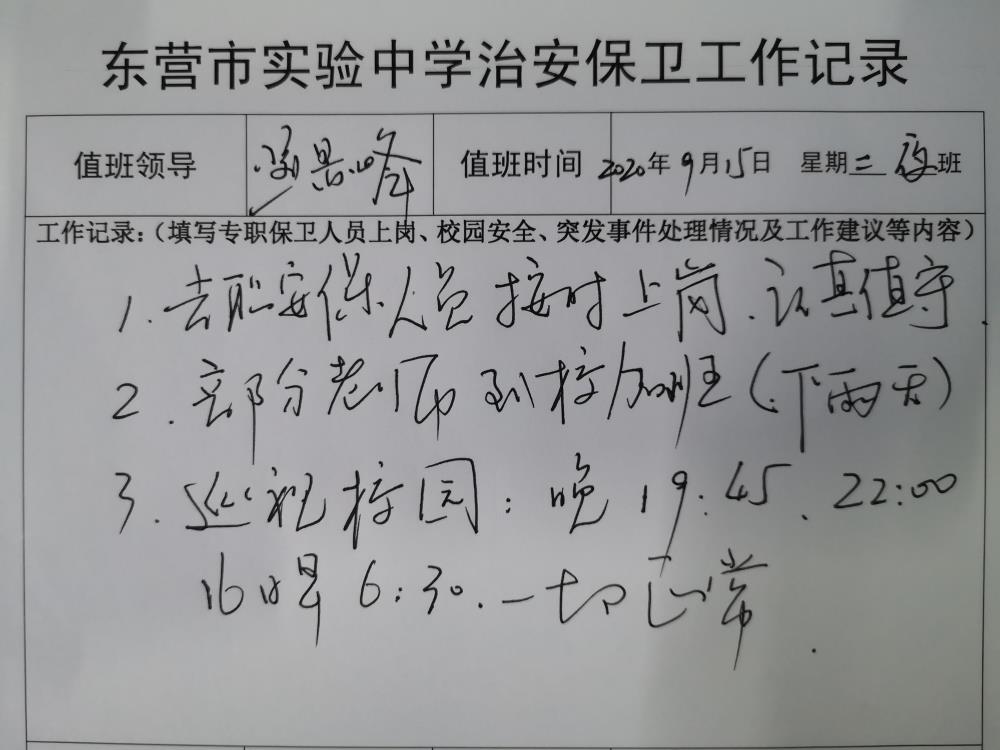 东营市实验中学治安保卫工作记录
值班领导 值班时间 2020年9月15日 星期二 夜班
工作记录：（填写专职保卫人员上岗、校园安全、突发事件处理情况及工作建议等内容）
1. 专职安保人员按时上岗、认真值守.
2. 部分老师到校加班（下雨天）
3. 巡视校园：晚19:45、22:00
16日早6:30.一切正常.